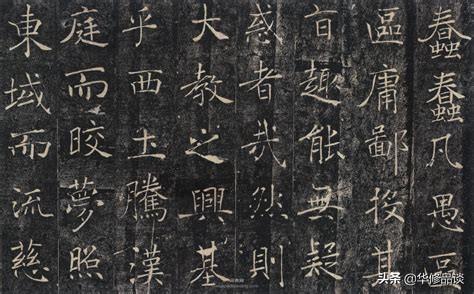 蠢蠢凡愚區
區庸鄙投其
旨趣能無疑
惑者哉然則
大教之興基
乎西土騰漢
庭而晈夢照
東域而流慈
头条 @华修品谈